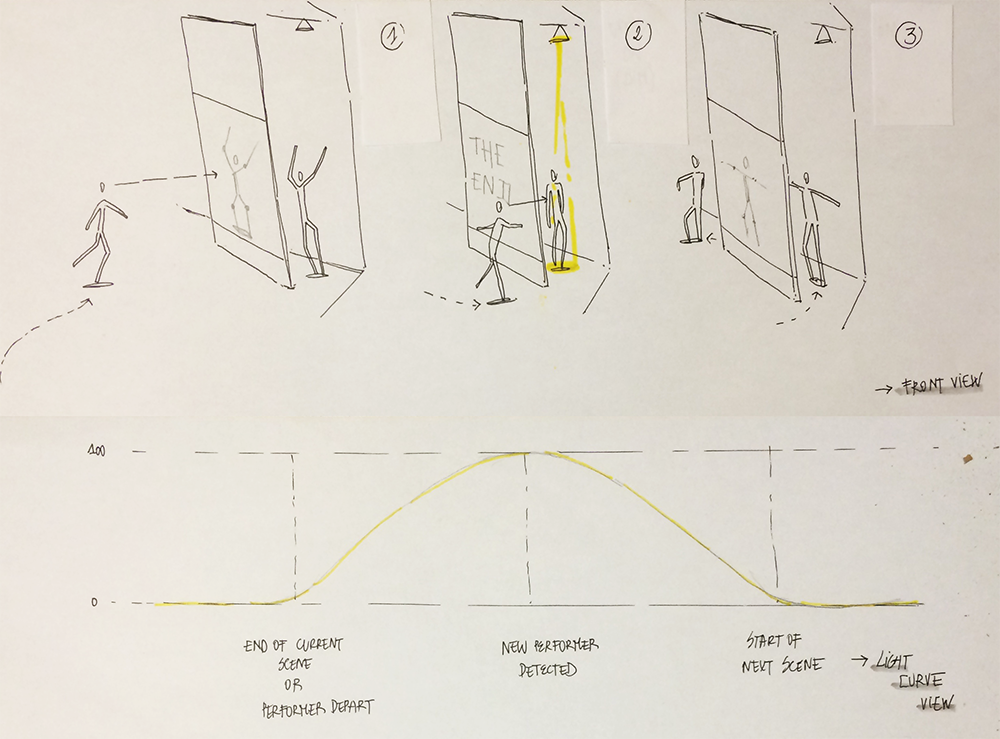 1
2
3
THE
END
→ FRONT VIEW
100
0
END OF CURRENT
SCENE
OR
PERFORMER DEPART
NEW PERFORMER
DETECTED
START OF
NEXT SCENE
→ LIGHT
CURVE
VIEW